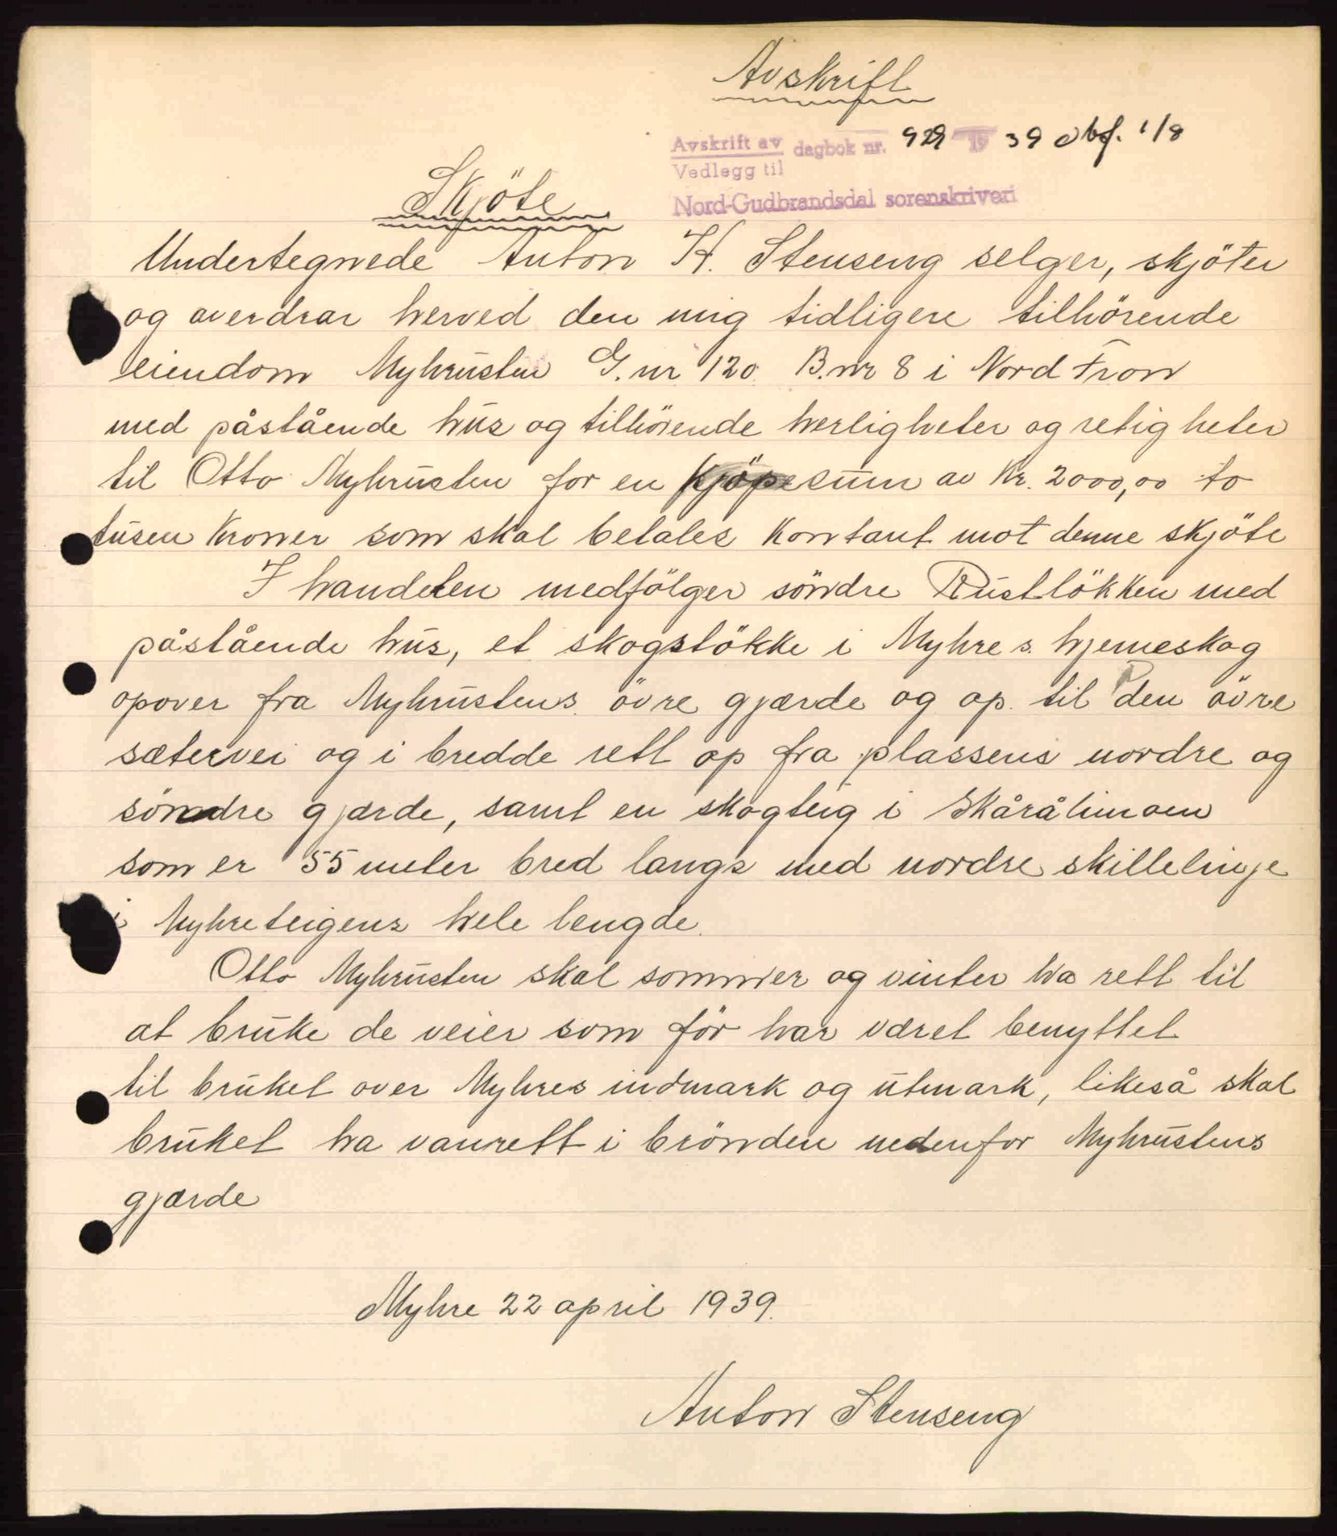 Avskrift
Avskrift av dagbok nr. 929 19 39 obf. 1/8
Vedlegg til
Nord-Gudbrandsdal sorenskriveri
Skjöte
Undertegnede Anton H. Stenseng selger, skjöter
og averdrar herved den mig tidligere tilhörende
eiendom Myhrusten G.nr 120 B.nr 8 i Nord Fron
med påstående hus og tilhörende herligheter og retigheter
til Otto Myhrusten for en kjöpesum av Kr. 2000,00 to
tusen kroner som skal betales kontant mot denne skjöte
I handelen medfölger söndre Rustlökken med
påstående hus, et skogstökke i Myhres hjemeskog
opover fra Myhrustens övre gjærde og op til den övre
sætervei og i bredde rett op fra plassens nordre og
söndre gjærde, samt en skogteig i Skårålimoen
som er 55 meter bred langs med nordre skillelinje
i Myhreteigens hele lengde.
Otto Myhrusten skal sommer og vinter ha rett til
at bruke de veier som för har været benyttet
til bruket over Myhres indmark og utmark, likeså skal
bruket ha vanrett i brönden nedenfor Myhrustens
gjærde
Myhre 22 april 1939.
Anton Stenseng